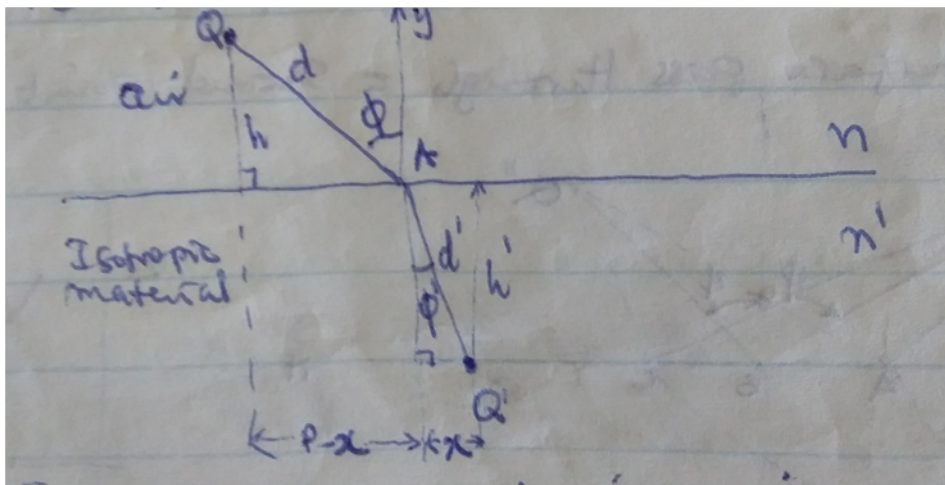 Q
y
d
air
φ
h
A
n
Isotropic
material
n'
d'
h'
φ'
Q'
p-x
x